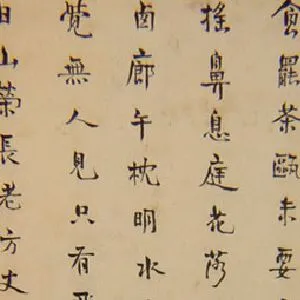 食罷茶甌未要
搖鼻息庭花落
回廊午枕明水
覺無人見只有飛
日山榮長老方丈